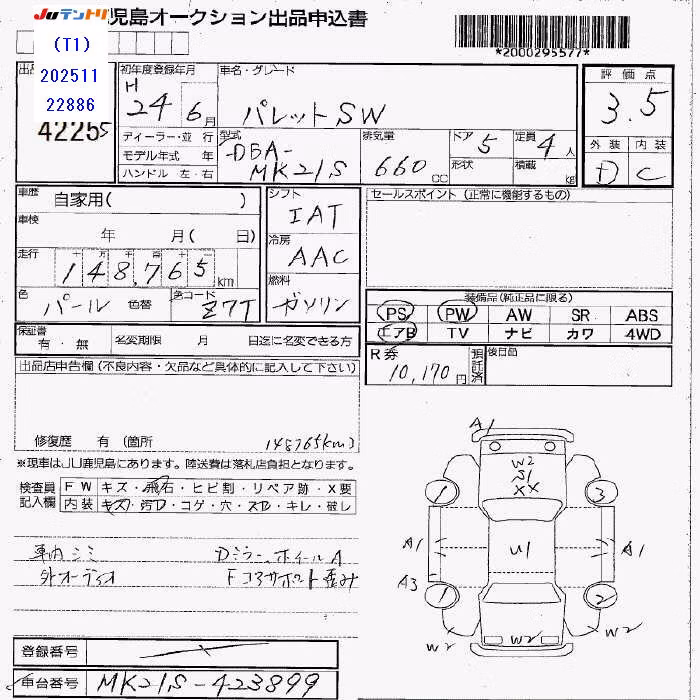 JUテントリ 児島オークション出品申込書
(T1)
202511
22886
*2000295577*
出品
42255
初年度登録年月
H
24 6月
ディーラー・並行
モデル年式 年
ハンドル 左・右
車名・グレード
パレットSW
型式
-DBA-
MK21S
排気量
660cc
ドア
5
形状
定員
4人
積載
kg
評価点
3.5
外装 内装
D C
車歴
自家用( )
車検
年 月( 日)
走行
十 万 千 百 十
148,765km
色
パール 色替
色コード
Z7T
シフト
IAT
冷房
AAC
燃料
ガソリン
セールスポイント (正常に機能するもの)
装備品(純正品に限る)
PS PW AW SR ABS
エアB TV ナビ カワ 4WD
保証書
有・無
名変期限 月 日迄に名変できる方
R券
10,170円
預託済
後日品
出品店申告欄(不良内容・欠品など具体的に記入して下さい)
修復歴 有(箇所
148765km)
※現車はJU鹿児島にあります。陸送費は落札店負担となります。
検査員
記入欄
FW キズ・飛石・ヒビ割・リペア跡・X要
内装 キズ・汚れ・コゲ・穴・スレ・キレ・破し
車内シミ
外オーディオ
Dミラー、ホイールA
Fコアサポート歪み
A1
W2
S1
XX
1
3
A1
U1
A1
A3
1
2
W2
W2
W2
登録番号
車台番号 MK21S-423899